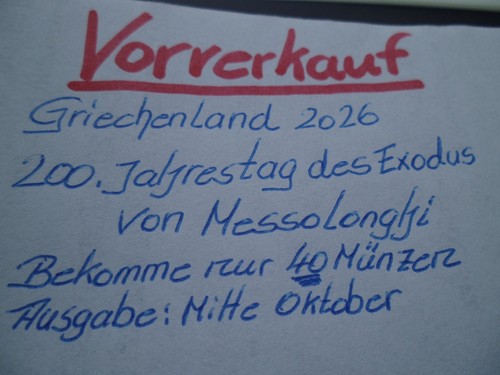 Vorverkauf
Griechenland 2026
200. Jahrestag des Exodus
von Messolonghi
Bekomme nur 40 Münzen
Ausgabe: Mitte Oktober